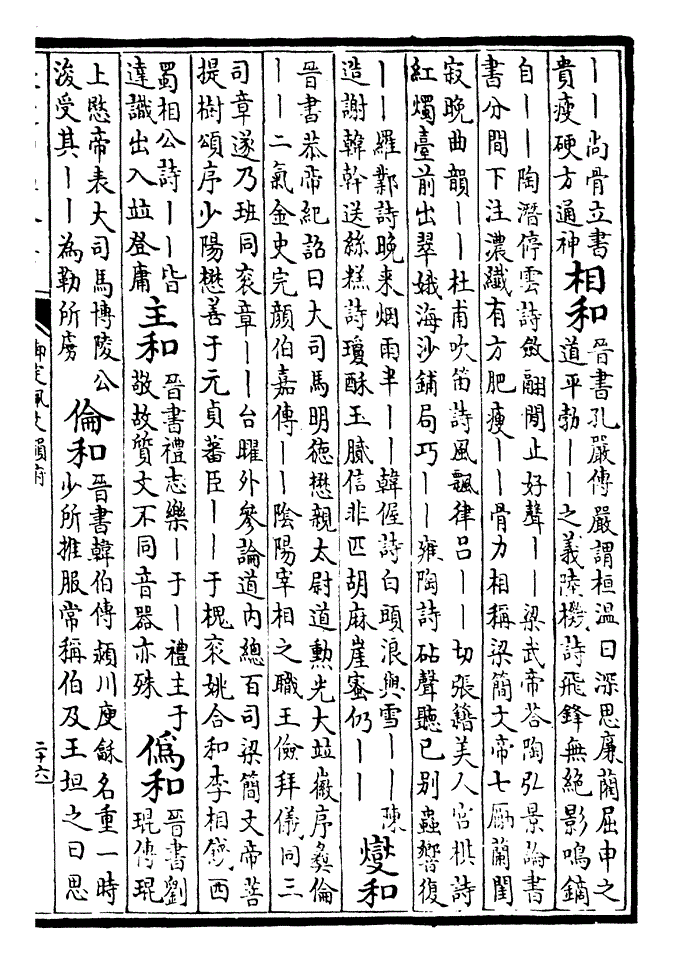 ——尚骨立書
貴瘦硬方通神
相和
晉書孔嚴傳嚴謂桓温曰深思廉藺屈申之
道平勃——之義陸機詩飛鋒無絕影鳴鏑
自——陶潛停雲詩斂翮閒止好聲——梁武帝荅陶弘景論書
書分間下注濃纖有方肥瘦——骨力相稱梁簡文帝七勵蘭閨
寂晚曲韻——杜甫吹笛詩風飄律呂——切張籍美人宮棋詩
紅燭臺前出翠娥海沙鋪局巧——雍陶詩砧聲聽已别蟲響復
——羅鄴詩晚來烟雨半——韓偓詩白頭浪與雪——陳
造謝韓幹送絲糕詩瓊酥玉膩信非匹胡麻崖蜜仍——
燮和
晉書恭帝紀詔曰大司馬明德懋親太尉道勲光大竝徽序彝倫
——二氣金史完顔伯嘉傳——陰陽宰相之職王儉拜儀同三
司章遂乃班同衮章——台曜外參論道内總百司梁簡文帝菩
提樹頌序少陽懋善于元貞蕃臣——于槐衮姚合和李相餞西
蜀相公詩——皆
達識出入竝登庸
主和
晉書禮志樂—于—禮主于
敬故質文不同音器亦殊
僞和
晉書劉
琨傳琨
上愍帝表大司馬博陵公
浚受其——為勒所虜
倫和
晉書韓伯傳潁川庾龢名重一時
少所推服常稱伯及王坦之曰思
二十六